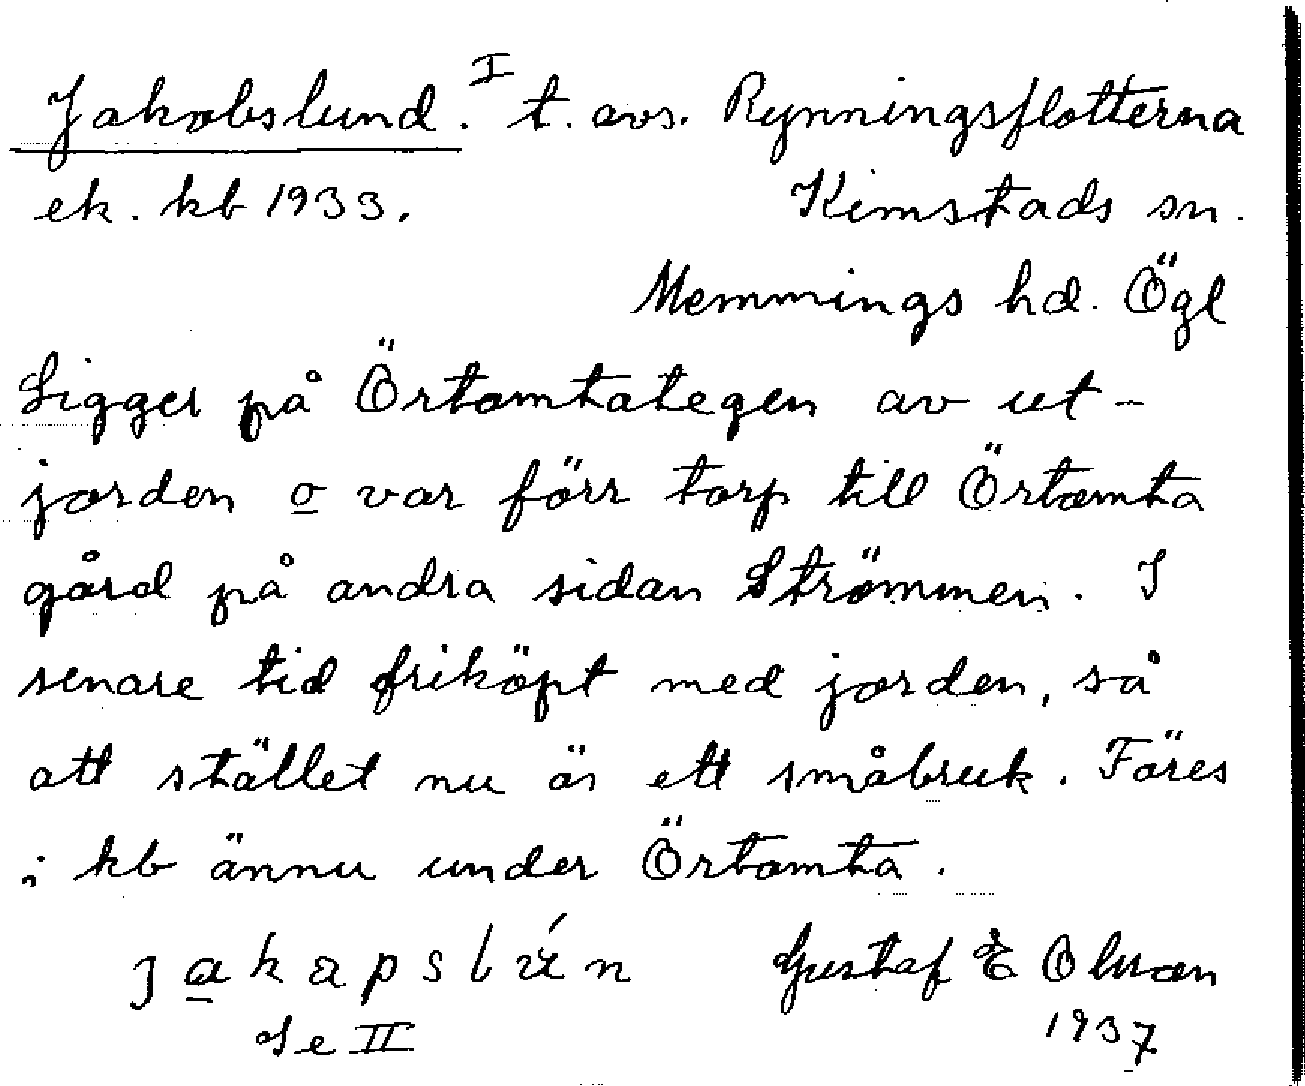 Jakobslund. I t. avs. Rynningsflotterna
ek. kb 1933. Kimstads sn.
Memmings hd. Ögl
Ligger på Örtomtategen av ut-
jorden o var förr torp till Örtomta
gård på andra sidan Strömmen. I
senare tid friköpt med jorden, så
att stället nu är ett småbruk. Föres
i kb ännu under Örtomta.
Gustaf E Olsson
Se II 1937